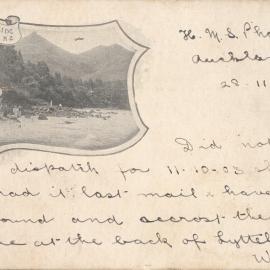 H. M. S. Pho
Auckla
28-11
Did not
dispatch for 11-10-03
had it last mail. have
ound and accrost the
e at the back of Lyttel
W